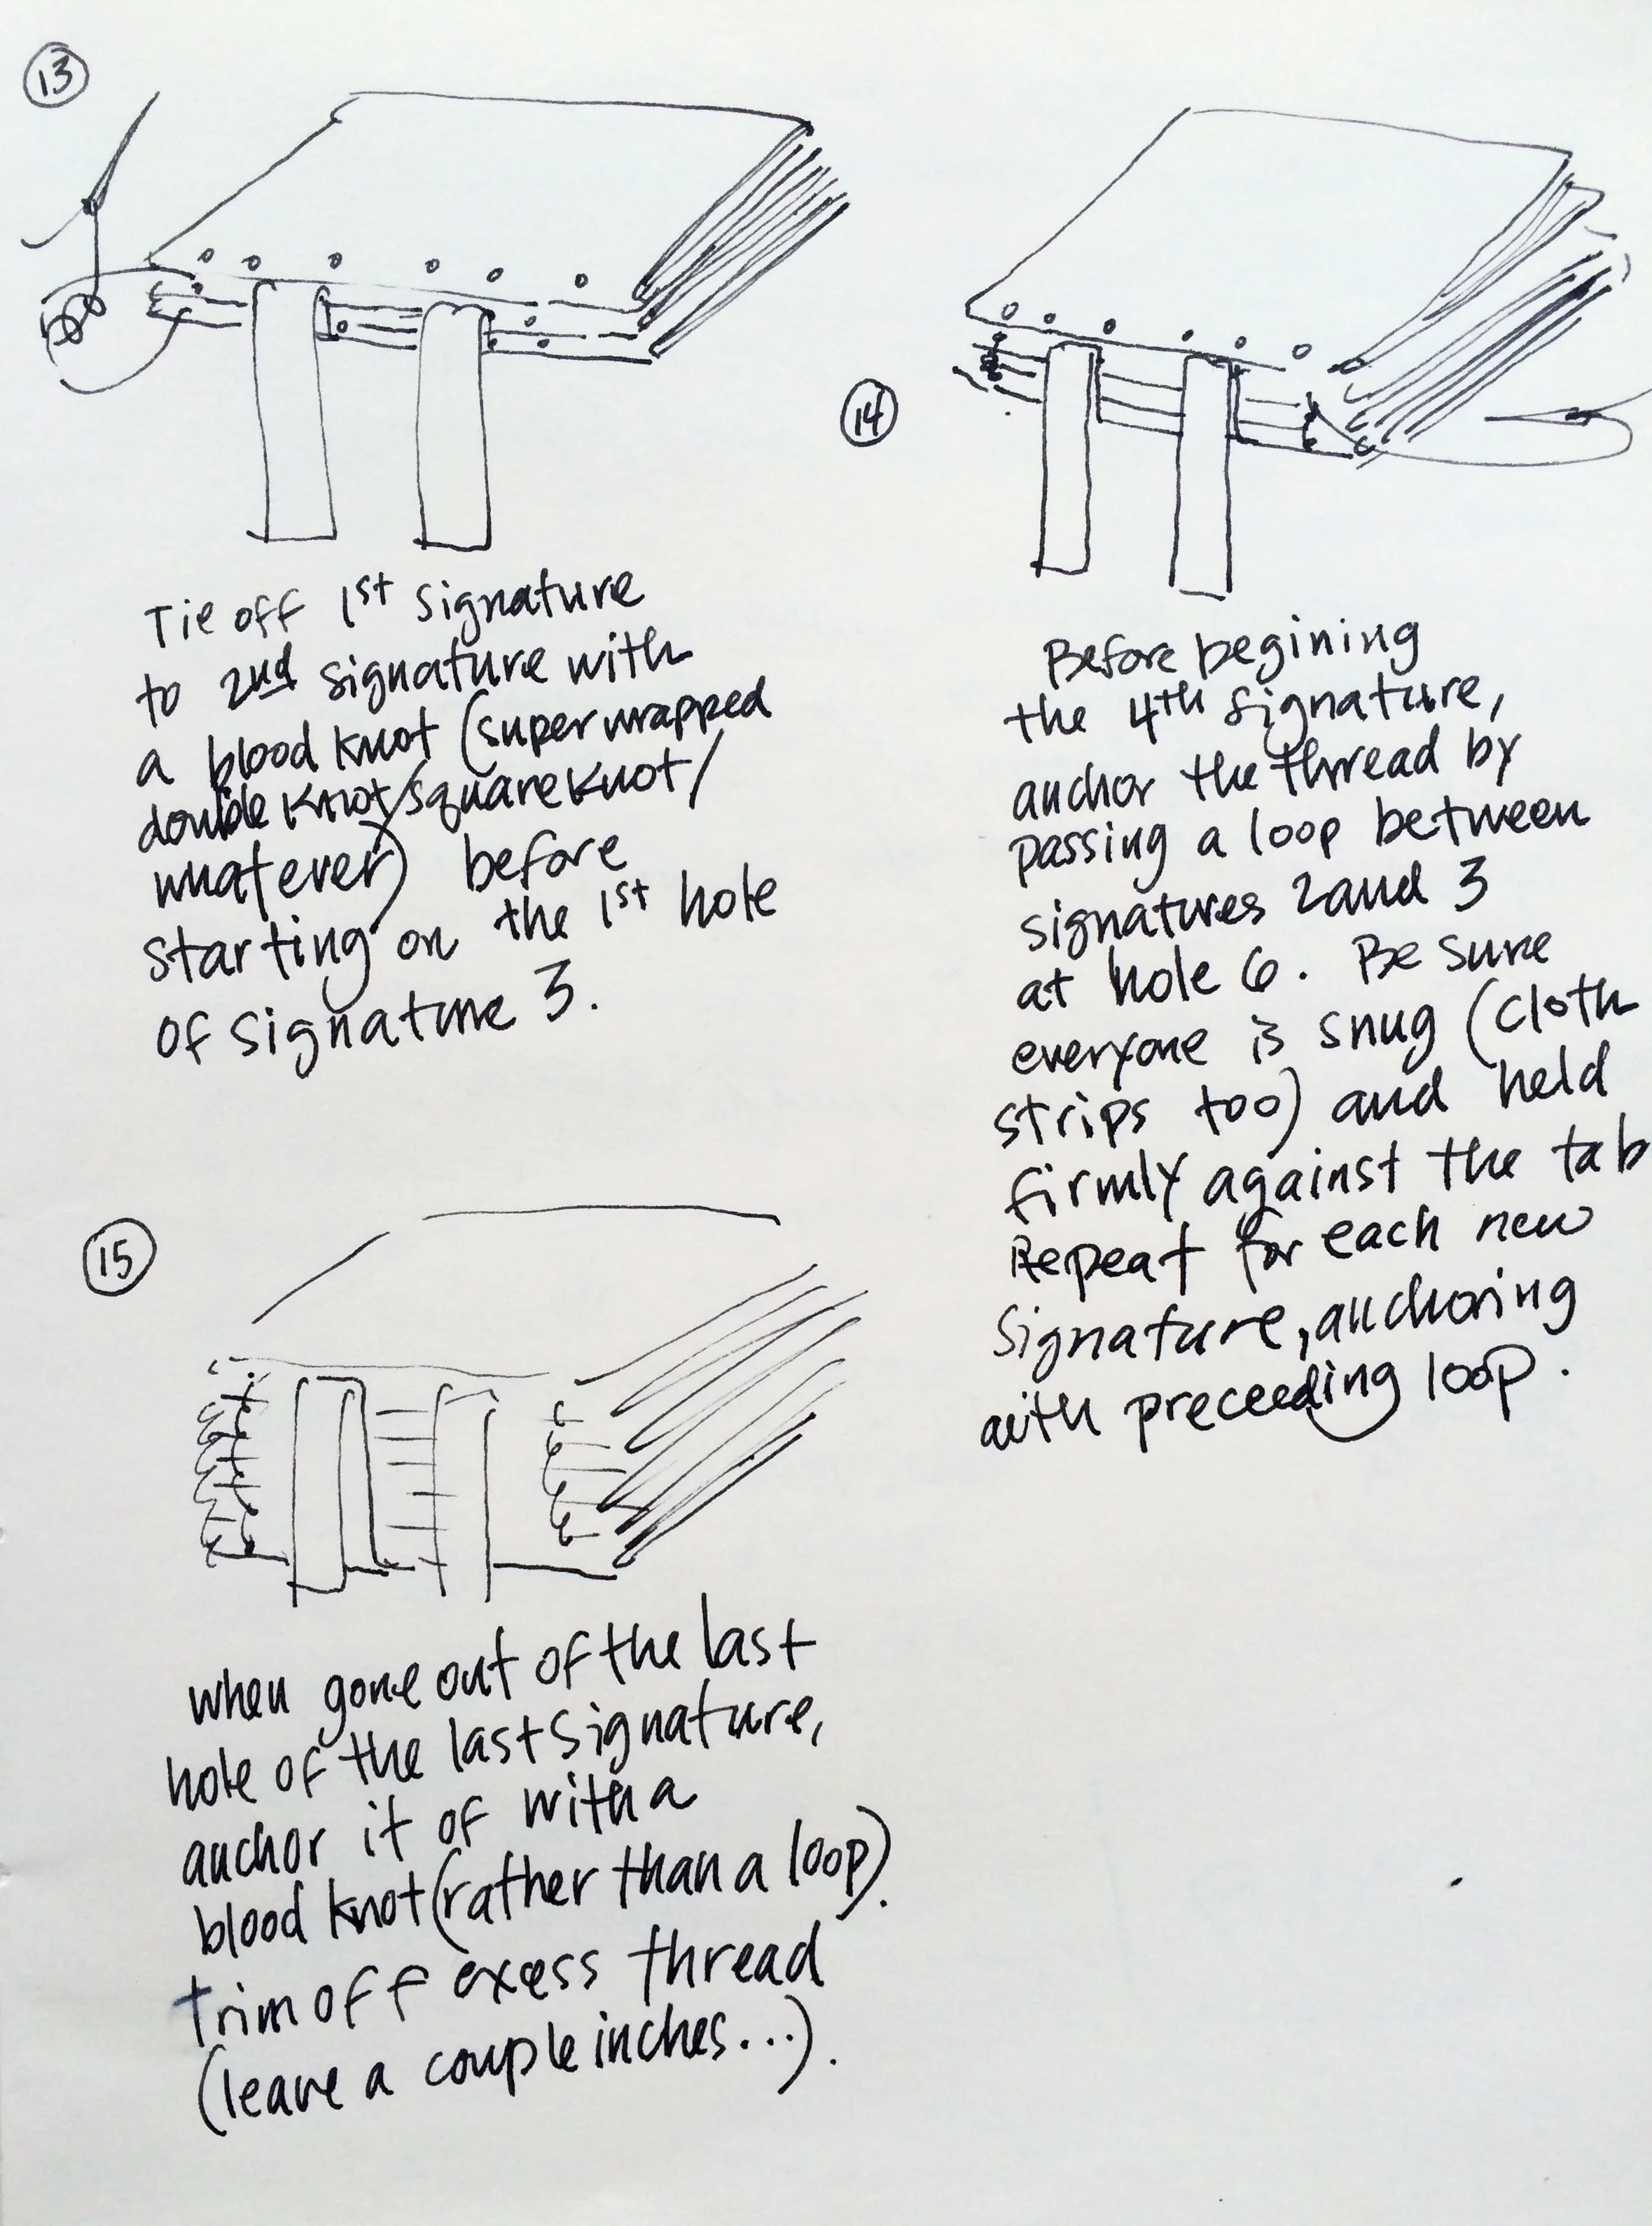 13
Tie off 1st signature
to 2nd signature with
a blood knot (super wrapped
double knot/square knot/
whatever) before
starting on the 1st hole
of signature 3.
14
Before begining
the 4th signature,
anchor the thread by
passing a loop between
signatures 2 and 3
at hole 6. Be sure
everyone is snug (cloth
strips too) and held
firmly against the tab
Repeat for each new
signature, anchoring
with preceeding loop.
15
when gone out of the last
hole of the last signature,
anchor it of with a
blood knot (rather than a loop).
trim off exess thread
(leave a couple inches...).